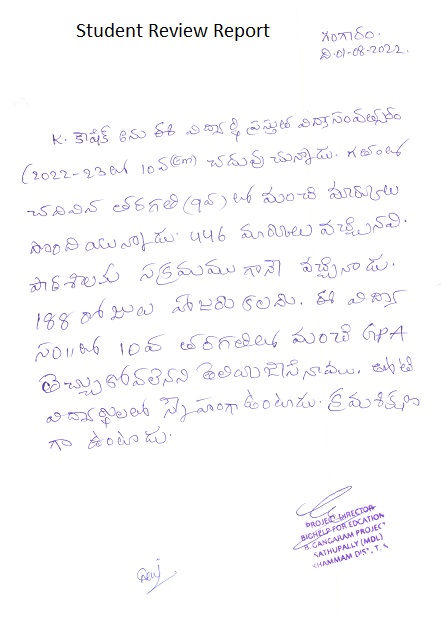 Student Review Report
గంగారం.
ది.01-08-2022.
K. కౌషిక్ అను ఈ విద్యార్థి ప్రస్తుత విద్యాసంవత్సరం
(2022-23లో 10వ(Em) చదువు చున్నాడు. గతంలో
చదివిన తరగతి (9వ) లో మంచి మార్కులు
పొంది యున్నాడు. 446 మార్కులు వచ్చినవి.
పాఠశాలకు సక్రమము గానే వచ్చినాడు.
188 రోజులు హాజరు కలదు. ఈ విద్యా
సం॥లో 10వ తరగతిలో మంచి GPA
తెచ్చుకోవలెనని తెలియజేసినాము. తోటి
విద్యార్థులలో స్నేహంగా ఉంటాడు. క్రమశిక్షణ
గా ఉంటాడు.
PROJECT DIRECTOR
BIGHELP FOR EDCATION
B. GANGARAM PROJECT
SATHUPALLY (MDL)
KHAMMAM DIST, T.S